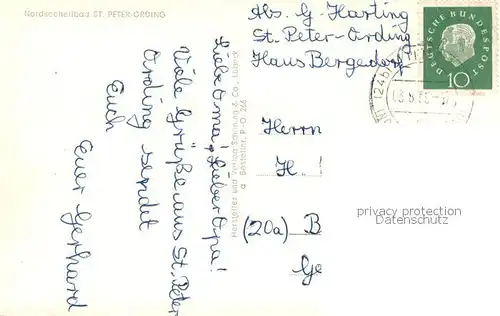 Nordseeheilbad ST. PETER-ORDING
Liebe Oma, Lieber Opa!
Viele Grüße aus St. Peter
Ording sendet
Euch
Euer Gerhard
Hersteller und Verlag Schöning & Co., Lübeck
Bestellnr. P.O. 266
Abs. G. Harting
St. Peter-Ording
Haus Bergedorf
DEUTSCHE BUNDESPOST
10
(24b)
Herrn
H.
(20a) B
Ge
privacy protection
Datenschutz